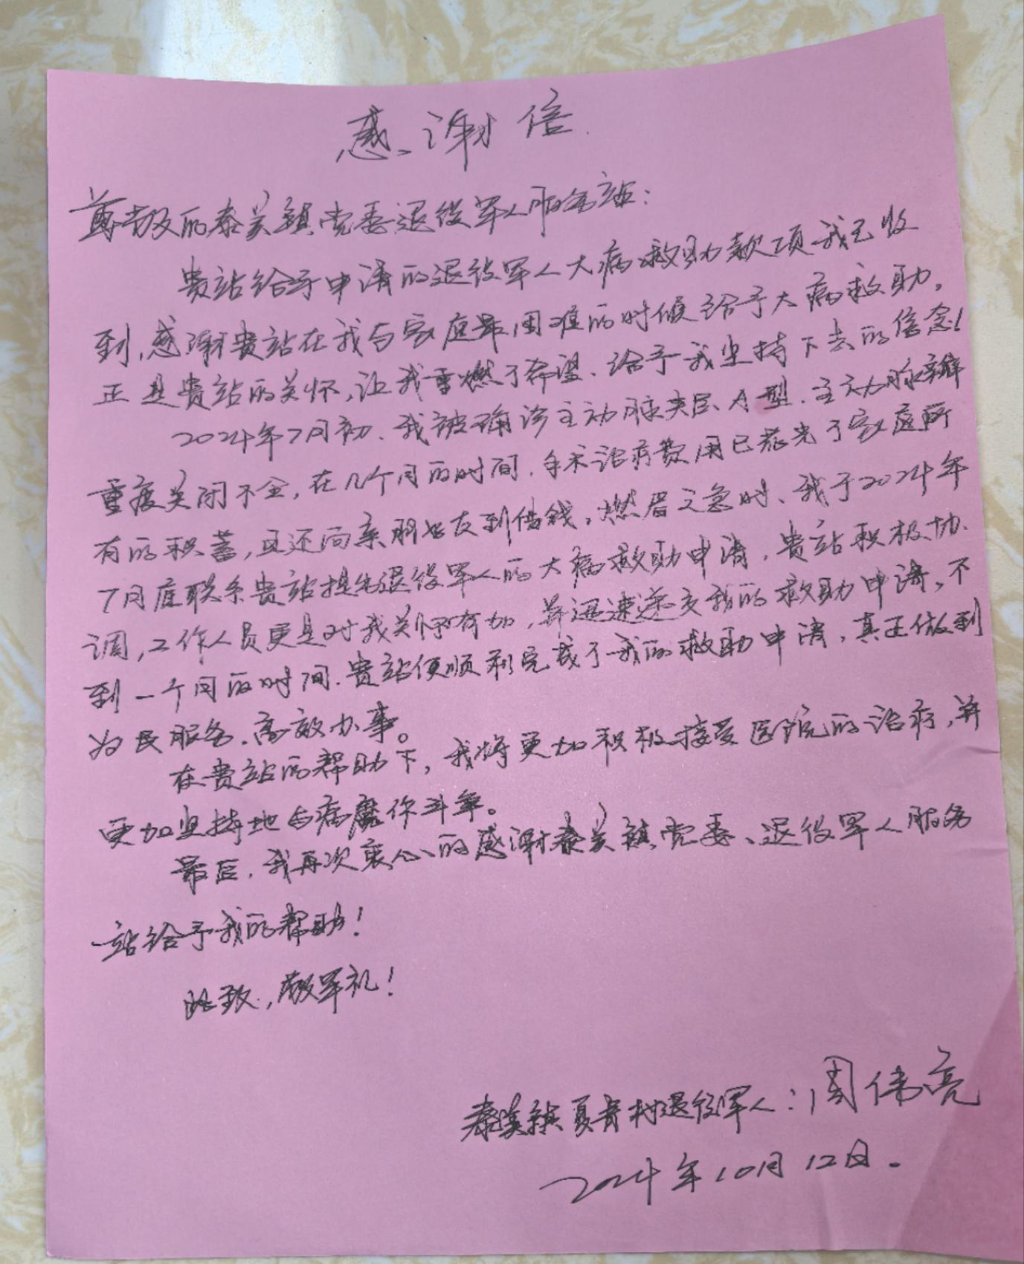 感谢信
尊敬的秦美镇党委退役军人服务站：
贵站给予申请的退役军人大病救助款项我已收
到，感谢贵站在我与家庭最困难的时候给予大病救助。
正是贵站的关怀，让我重燃了希望、给予我坚持下去的信念！
2024年7月初、我被确诊主动脉夹层、A型、主动脉瓣
重度关闭不全，在几个月的时间、手术治疗费用已花光了家庭所
有的积蓄，且还向亲朋好友到借钱，燃眉之急时、我于2024年
7月底联系贵站提起退役军人的大病救助申请，贵站积极协
调，工作人员更是对我关怀有加，并迅速递交我的救助申请，不
到一个月的时间、贵站便顺利完成了我的救助申请，真正做到
为民服务、高效办事。
在贵站的帮助下，我将更加积极接受医院的治疗，并
更加坚持地与病魔作斗争。
最后，我再次衷心的感谢秦美镇党委、退役军人服务
站给予我的帮助！
此致，敬军礼！
镇夏青村退役军人：周伟亮
2024年10月12日.